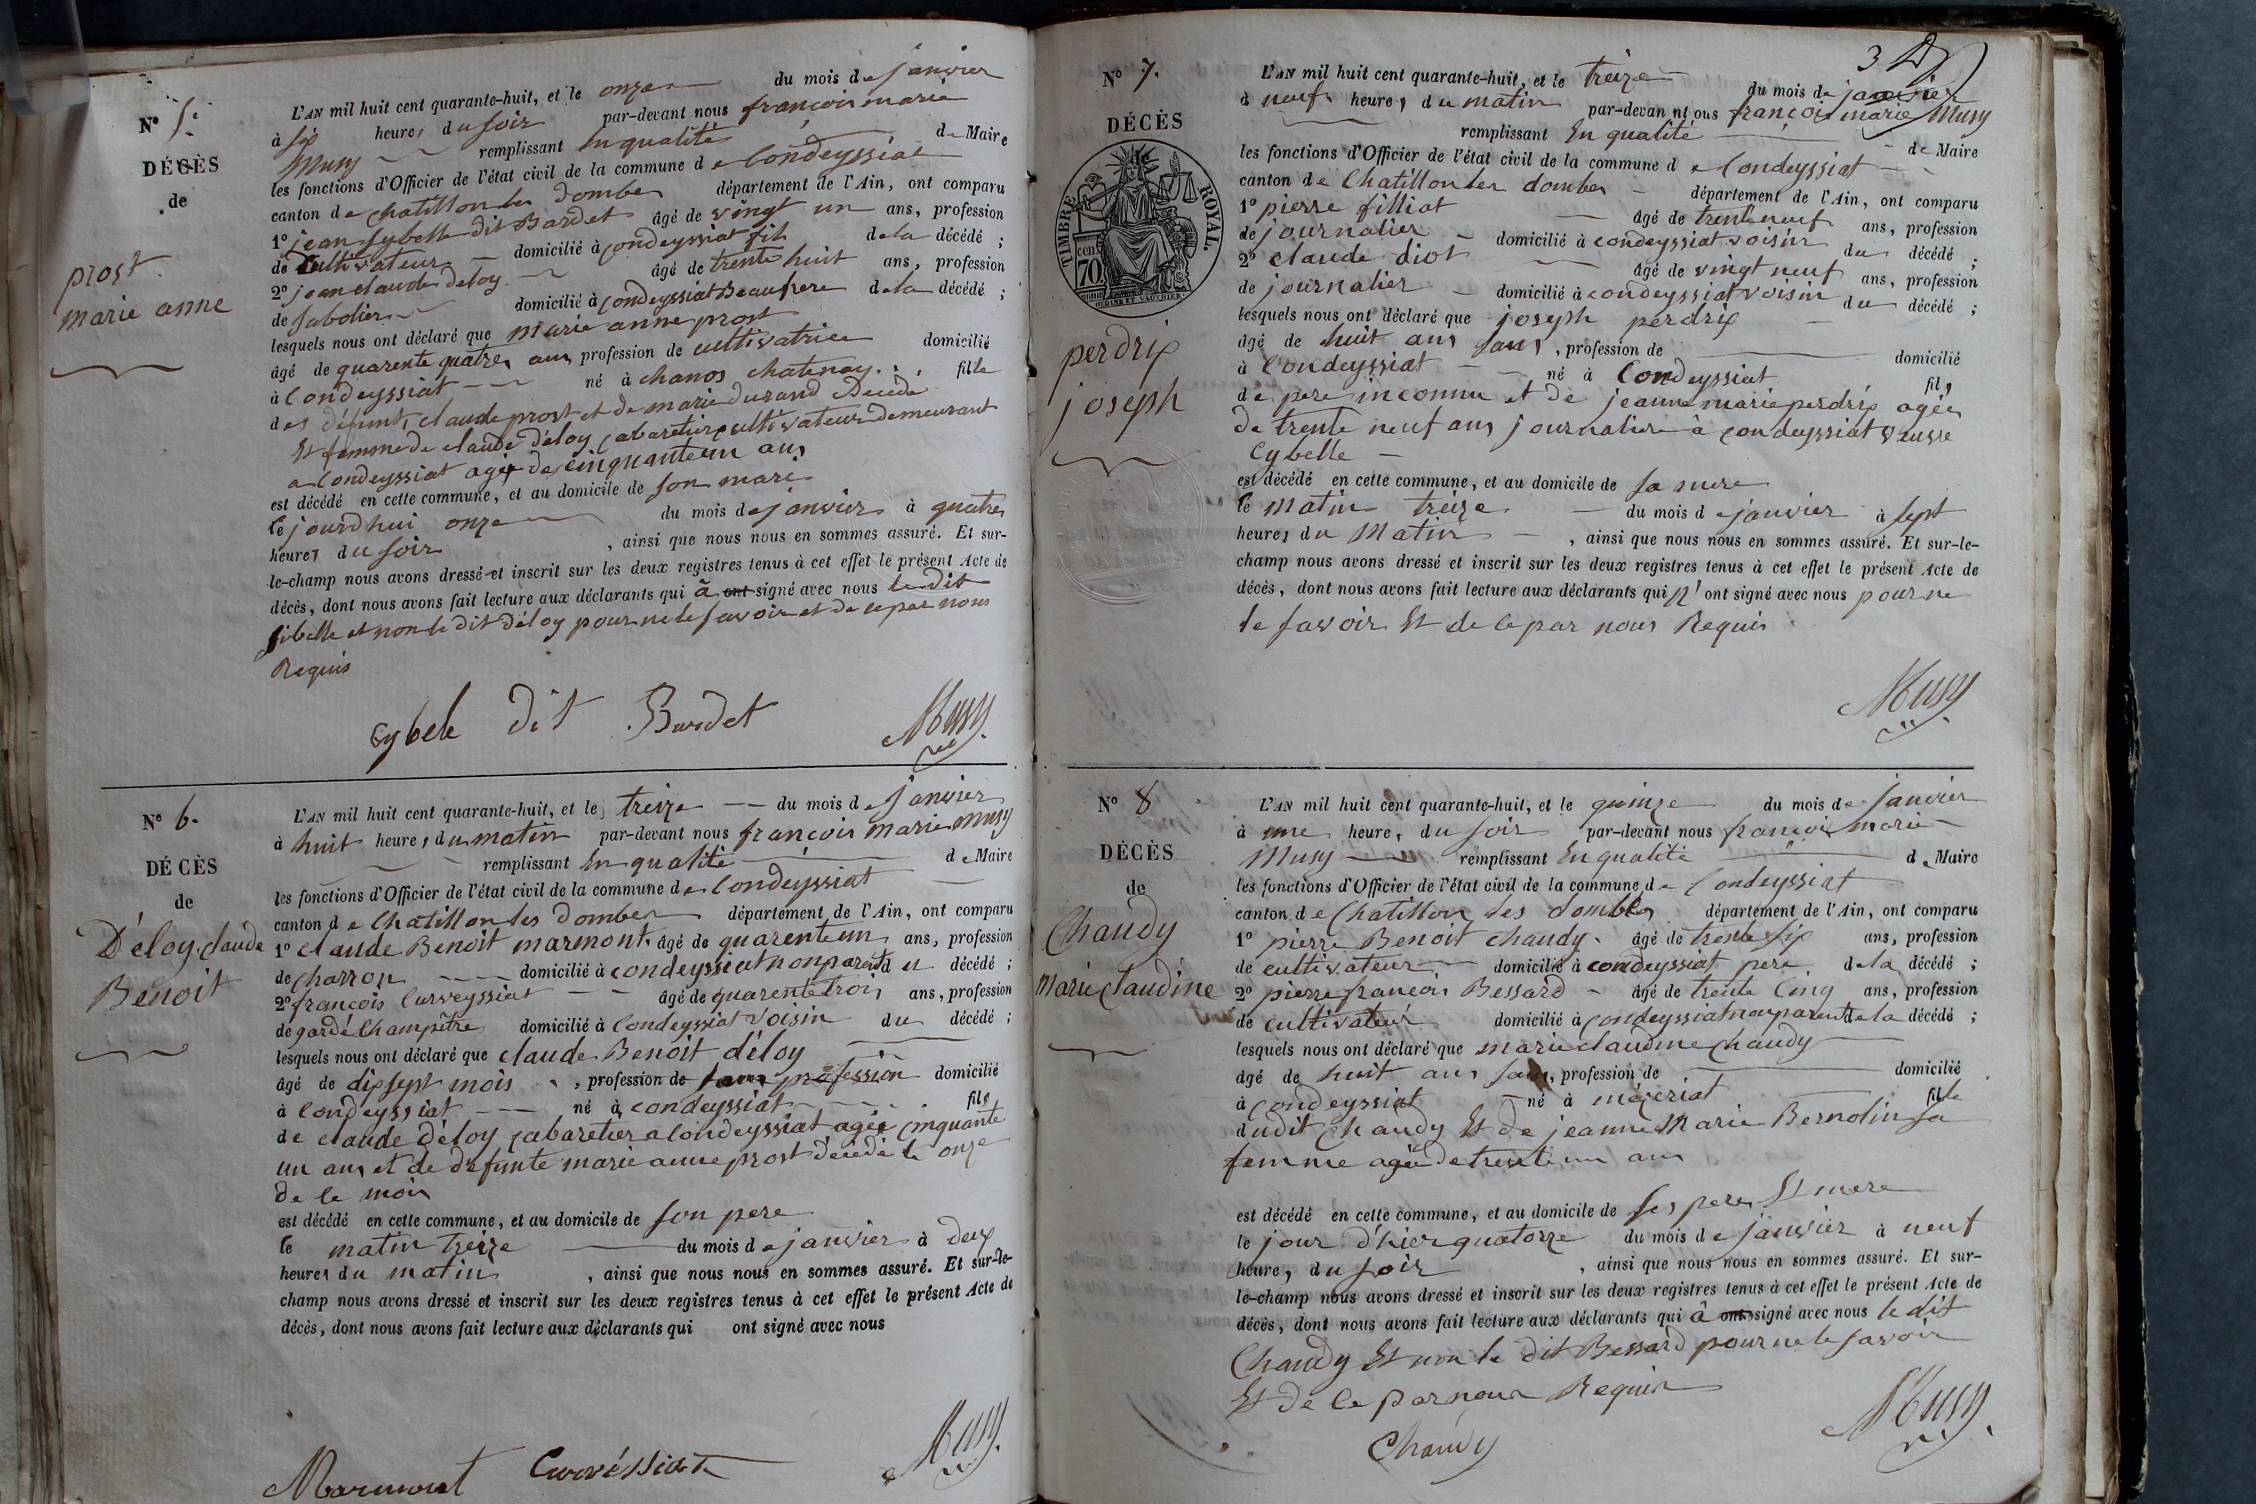 N° 5.
DÉCÈS
de
prost
marie anne
L'AN mil huit cent quarante-huit, et le onze du mois de janvier
à six heures du soir par-devant nous françois marie
Musy remplissant En qualité de Maire
les fonctions d'Officier de l'état civil de la commune de Condeyssiat
canton de Chatillon les Dombes département de l'Ain, ont comparu
1° jean Sybelle dit Bardet âgé de vingt un ans, profession
de Cultivateur domicilié à Condeyssiat fils de la décédé ;
2° jean claude deloy âgé de trente huit ans, profession
de Sabotier domicilié à Condeyssiat Beaufrere de la décédé ;
lesquels nous ont déclaré que marie anne prost
âgé de quarente quatre ans, profession de cultivatrice domicilié
à Condeyssiat né à chanos chatenay fille
des défunts claude prost et de marie durand Décédé
Et femme de claude déloy cabaretier cultivateur demeurant
a Condeyssiat agé de cinquante un ans
est décédé en cette commune, et au domicile de son mari
le jourdhui onze du mois de janvier à quatre
heures du soir , ainsi que nous nous en sommes assuré. Et sur-
le-champ nous avons dressé et inscrit sur les deux registres tenus à cet effet le présent Acte de
décès, dont nous avons fait lecture aux déclarants qui à ont signé avec nous le dit
Sibelle et non le dit déloy pour ne le savoir et de ce par nous
Requis
Cybele dit Bardet Musy
N° 6.
DÉCÈS
de
Déloy claude
Benoit
L'AN mil huit cent quarante-huit, et le treize du mois de janvier
à huit heures du matin par-devant nous françois marie musy
remplissant En qualité de Maire
les fonctions d'Officier de l'état civil de la commune de Condeyssiat
canton de Chatillon les Dombes département de l'Ain, ont comparu
1° claude Benoit marmont âgé de quarente un ans, profession
de charron domicilié à condeyssiat non parent du décédé ;
2° françois Curveyssiat âgé de quarente trois ans, profession
de garde Champêtre domicilié à Condeyssiat voisin du décédé ;
lesquels nous ont déclaré que claude Benoit déloy
âgé de dix sept mois , profession de sans profession domicilié
à Condeyssiat né à condeyssiat fils
de claude déloy cabaretier a Condeyssiat agée cinquante
un ans et de defunte marie anne prost décédé le onze
de ce mois
est décédé en cette commune, et au domicile de son pere
le matin treize du mois de janvier à deux
heures du matin , ainsi que nous nous en sommes assuré. Et sur-le-
champ nous avons dressé et inscrit sur les deux registres tenus à cet effet le présent Acte de
décès, dont nous avons fait lecture aux déclarants qui ont signé avec nous
Marmont Curvéssiat Musy
3
N° 7.
DÉCÈS
de
TIMBRE ROYAL.
70 cent
perdrix
joseph
L'AN mil huit cent quarante-huit, et le treize du mois de janvier
à neuf heures du matin par-devant nous françois marie Musy
remplissant En qualité de Maire
les fonctions d'Officier de l'état civil de la commune de Condeyssiat
canton de Chatillon les dombes département de l'Ain, ont comparu
1° pierre filliat âgé de trente neuf ans, profession
de journalier domicilié à condeyssiat voisin du décédé ;
2° claude diot âgé de vingt neuf ans, profession
de journalier domicilié à condeyssiat voisin du décédé ;
lesquels nous ont déclaré que joseph perdrix
âgé de huit ans sans , profession de domicilié
à Condeyssiat né à Condeyssiat fils
de pere inconnu et de jeanne marie perdrix agée
de trente neuf ans journaliere à condeyssiat veusve
Cybelle
est décédé en cette commune, et au domicile de sa mere
le matin treize du mois de janvier à sept
heures du Matin , ainsi que nous nous en sommes assuré. Et sur-le-
champ nous avons dressé et inscrit sur les deux registres tenus à cet effet le présent Acte de
décès, dont nous avons fait lecture aux déclarants qui n'ont signé avec nous pour ne
le savoir Et de ce par nous Requis
Musy
N° 8
DÉCÈS
de
Chaudy
Marie claudine
L'AN mil huit cent quarante-huit, et le quinze du mois de Janvier
à une heure, du soir par-devant nous françois marie
Musy remplissant En qualité de Maire
les fonctions d'Officier de l'état civil de la commune de Condeyssiat
canton de Chatillon les dombes département de l'Ain, ont comparu
1° pierre Benoit chaudy âgé de trente six ans, profession
de cultivateur domicilié à condeyssiat pere de la décédé ;
2° pierre françois Bessard âgé de trente Cinq ans, profession
de cultivateur domicilié à condeyssiat non parent de la décédé ;
lesquels nous ont déclaré que marie claudine chaudy
âgé de huit ans sans, profession de domicilié
à condeyssiat né à mézeriat fille
dudit Chaudy Et de jeanne Marie Bernolin sa
femme agée de trente un ans
est décédé en cette commune, et au domicile de ses pere Et mere
le jour d'hier quatorze du mois de Janvier à neuf
heure, du soir , ainsi que nous nous en sommes assuré. Et sur-
le-champ nous avons dressé et inscrit sur les deux registres tenus à cet effet le présent Acte de
décès, dont nous avons fait lecture aux déclarants qui à ont signé avec nous le dit
Chaudy Et non le dit Bessard pour ne le savoir
Et de ce par nous Requis
Chaudy Musy